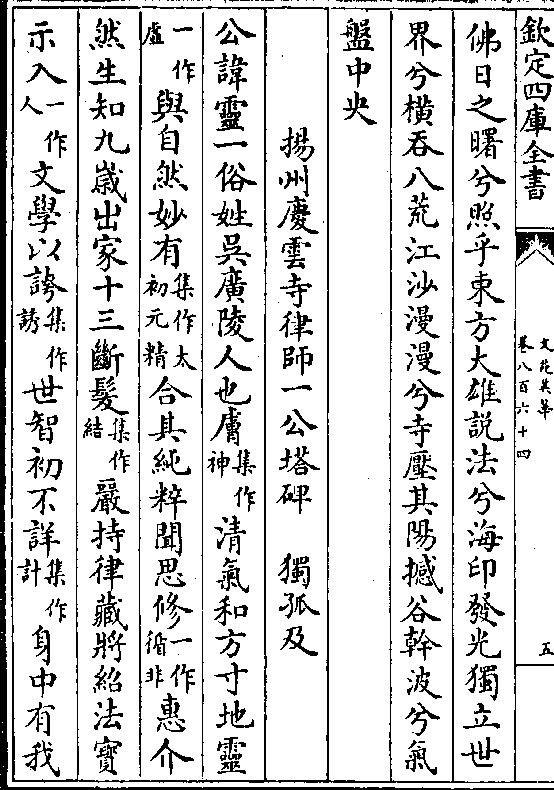 欽定四庫全書
文苑英華
卷八百六十四
五
佛日之曙兮照乎東方大雄説法兮海印發光獨立世
界兮橫吞八荒江沙漫漫兮寺壓其陽撼谷幹波兮氣
盤中央
揚州慶雲寺律師一公塔碑 獨孤及
公諱靈一俗姓吳廣陵人也膚集作神清氣和方寸地靈
一作虛與自然妙有集作太初元精合其純粹聞思修一作循非惠介
然生知九嵗出家十三斷髮集作結嚴持律藏將紹法寳
示入一作人文學以誇集作誘世智初不詳集作計身中有我